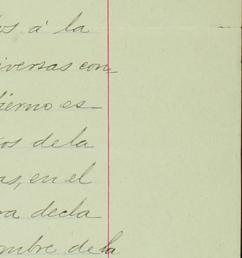 os á la
iversas con
ierno es-
os de la
as, en el
a decla
mbre de la